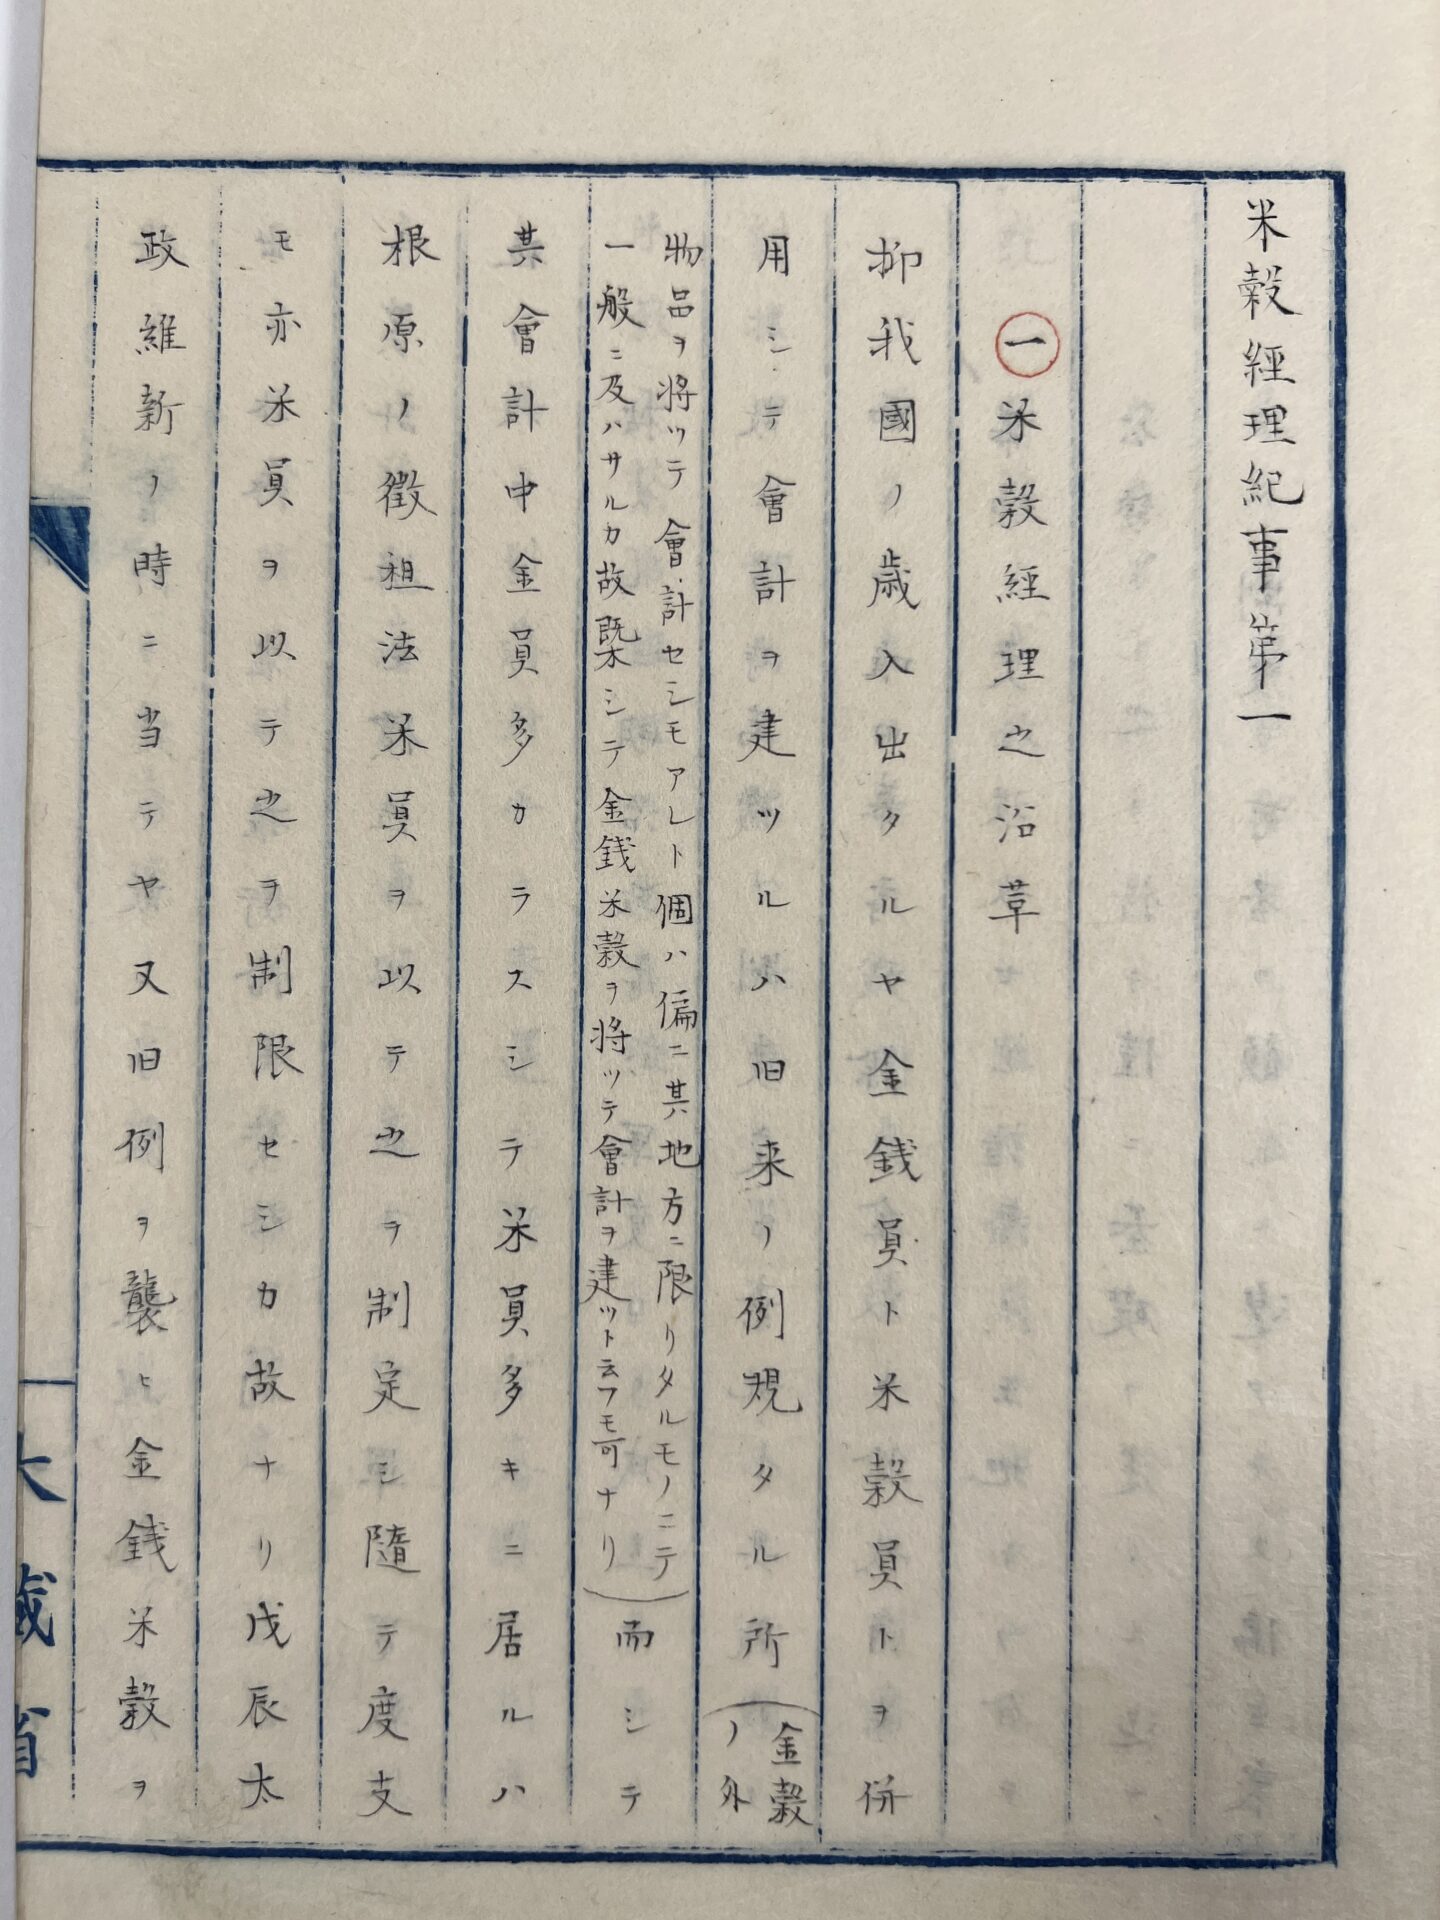 米穀經理紀事第一
一米穀經理之沿革
抑我國ノ歳入出タルヤ金銭員ト米穀員トヲ併
用シテ會計ヲ建ツルハ旧来ノ例規タル所(金穀
ノ外
物品ヲ将ツテ會計セシモアレト個ハ偏ニ其地方ニ限リタルモノニテ
一般ニ及ハサルカ故槩シテ金銭米穀ヲ将ツテ會計ヲ建ツト云フモ可ナリ)而シテ
其會計中金員多カラスシテ米員多キニ居ルハ
根原ノ徴租法米員ヲ以テ之ヲ制定シ隨テ度支
モ亦米員ヲ以テ之ヲ制限セシカ故ナリ戊辰太
政維新ノ時ニ当テヤ又旧例ヲ襲ヒ金銭米穀ヲ
大藏省